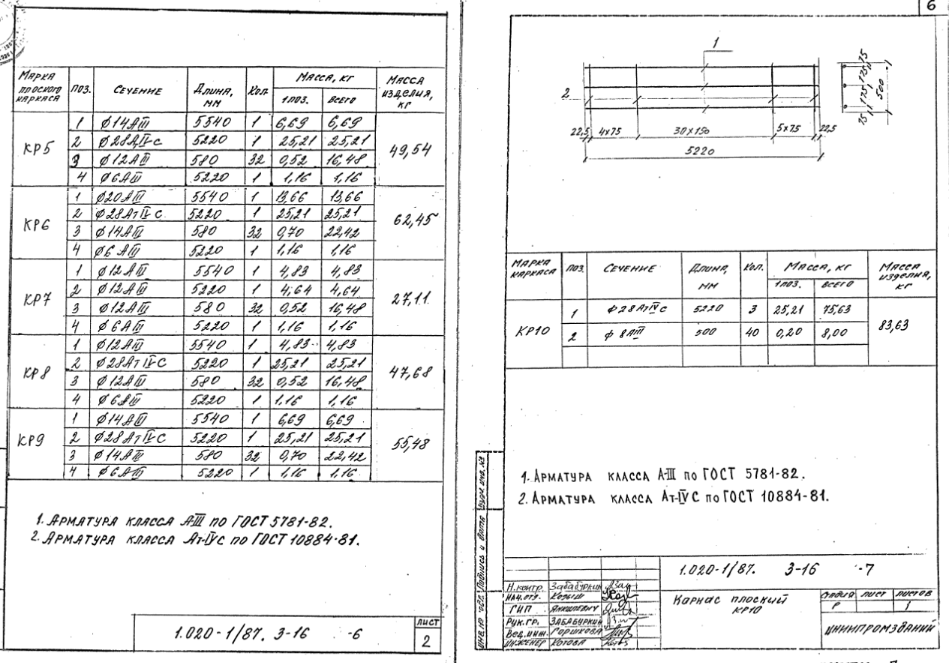 МАРКА ПЛОСКОГО КАРКАСА ПОЗ. СЕЧЕНИЕ ДЛИНА, ММ КОЛ МАССА, КГ МАССА ИЗДЕЛИЯ, КГ
1 ПОЗ. ВСЕГО
КР5 49,54
1 Ф14АIII 5540 1 6,69 6,69
2 Ф28АтIVС 5220 1 25,21 25,21
3 Ф12АIII 580 32 0,52 16,48
4 Ф6АIII 5220 1 1,16 1,16
КР6 62,45
1 Ф20АIII 5540 1 13,66 13,66
2 Ф28АтIVС 5220 1 25,21 25,21
3 Ф14АIII 580 32 0,70 22,42
4 Ф6АIII 5220 1 1,16 1,16
КР7 27,11
1 Ф12АIII 5540 1 4,83 4,83
2 Ф12АIII 5220 1 4,64 4,64
3 Ф12АIII 580 32 0,52 16,48
4 Ф6АIII 5220 1 1,16 1,16
КР8 47,68
1 Ф12АIII 5540 1 4,83 4,83
2 Ф28АтIVС 5220 1 25,21 25,21
3 Ф12АIII 580 32 0,52 16,48
4 Ф6АIII 5220 1 1,16 1,16
КР9 55,48
1 Ф14АIII 5540 1 6,69 6,69
2 Ф28АтIVС 5220 1 25,21 25,21
3 Ф14АIII 580 32 0,70 22,42
4 Ф6АIII 5220 1 1,16 1,16
1. АРМАТУРА КЛАССА А-III ПО ГОСТ 5781-82.
2. АРМАТУРА КЛАССА Ат-IVС ПО ГОСТ 10884-81.
1.020-1/87. 3-16 -6
ЛИСТ
2
6
1
2
75 175 175 75
500
22,5 4×75 30×150 5×75 22,5
5220
МАРКА КАРКАСА ПОЗ. СЕЧЕНИЕ ДЛИНА, ММ КОЛ. МАССА, КГ МАССА ИЗДЕЛИЯ, КГ
1 ПОЗ. ВСЕГО
КР10 83,63
1 Ф28АтIVС 5220 3 25,21 75,63
2 Ф8АIII 500 40 0,20 8,00
1. АРМАТУРА КЛАССА А-III ПО ГОСТ 5781-82.
2. АРМАТУРА КЛАССА Ат-IVС ПО ГОСТ 10884-81.
ВЗАМ. ИНВ. №
ПОДПИСЬ И ДАТА
1.020-1/87. 3-16 -7
Н.КОНТР. ЗАБАБУРКИН
НАЧ. ОТД.
ГИП
РУК. ГР. ЗАБАБУРКИН
ВЕД. ИНЖ. ГОРШКОВА
ИНЖЕНЕР КОТОВА
КАРКАС ПЛОСКИЙ
КР10
СТАДИЯ ЛИСТ ЛИСТОВ
Р 1
ЦНИИПРОМЗДАНИЙ